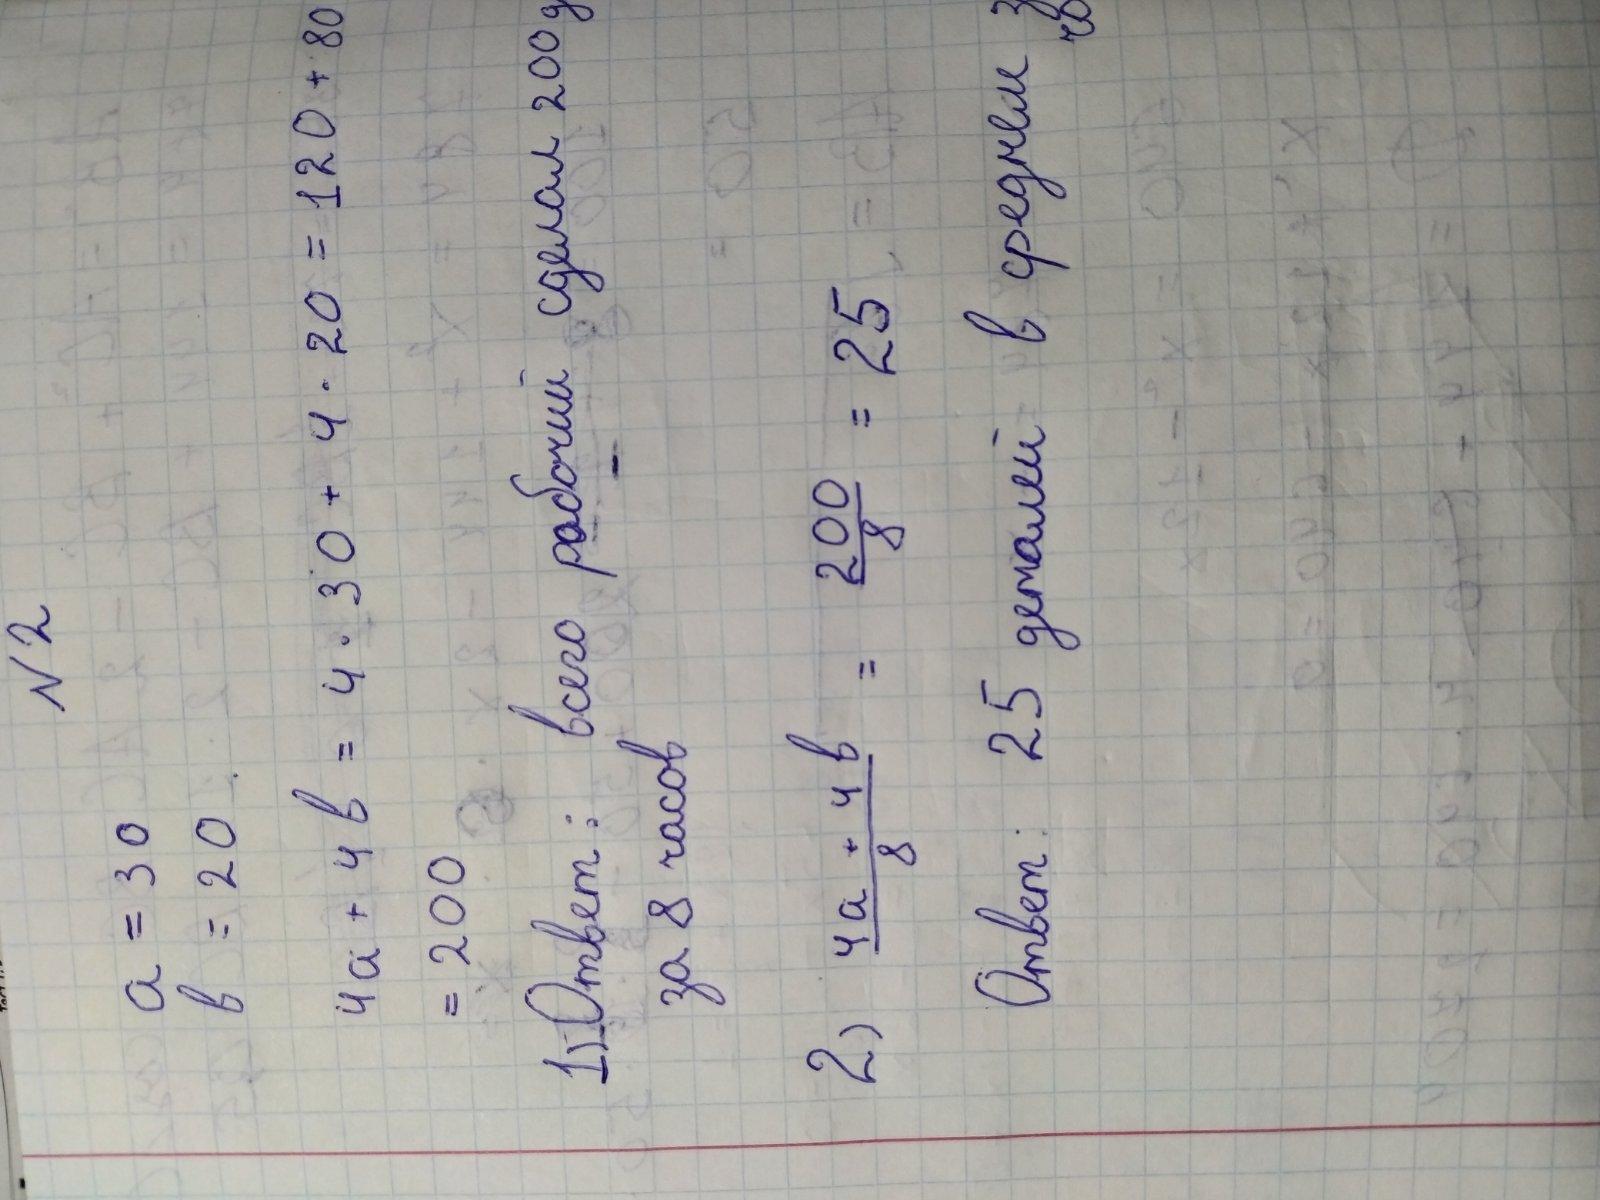 N 2
a = 30
в = 20
4a + 4в = 4 · 30 + 4 · 20 = 120 + 80
= 200
1) Ответ: всего рабочий сделал 200 д
за 8 часов
2) 4a + 4в / 8 = 200 / 8 = 25
Ответ: 25 деталей в среднем